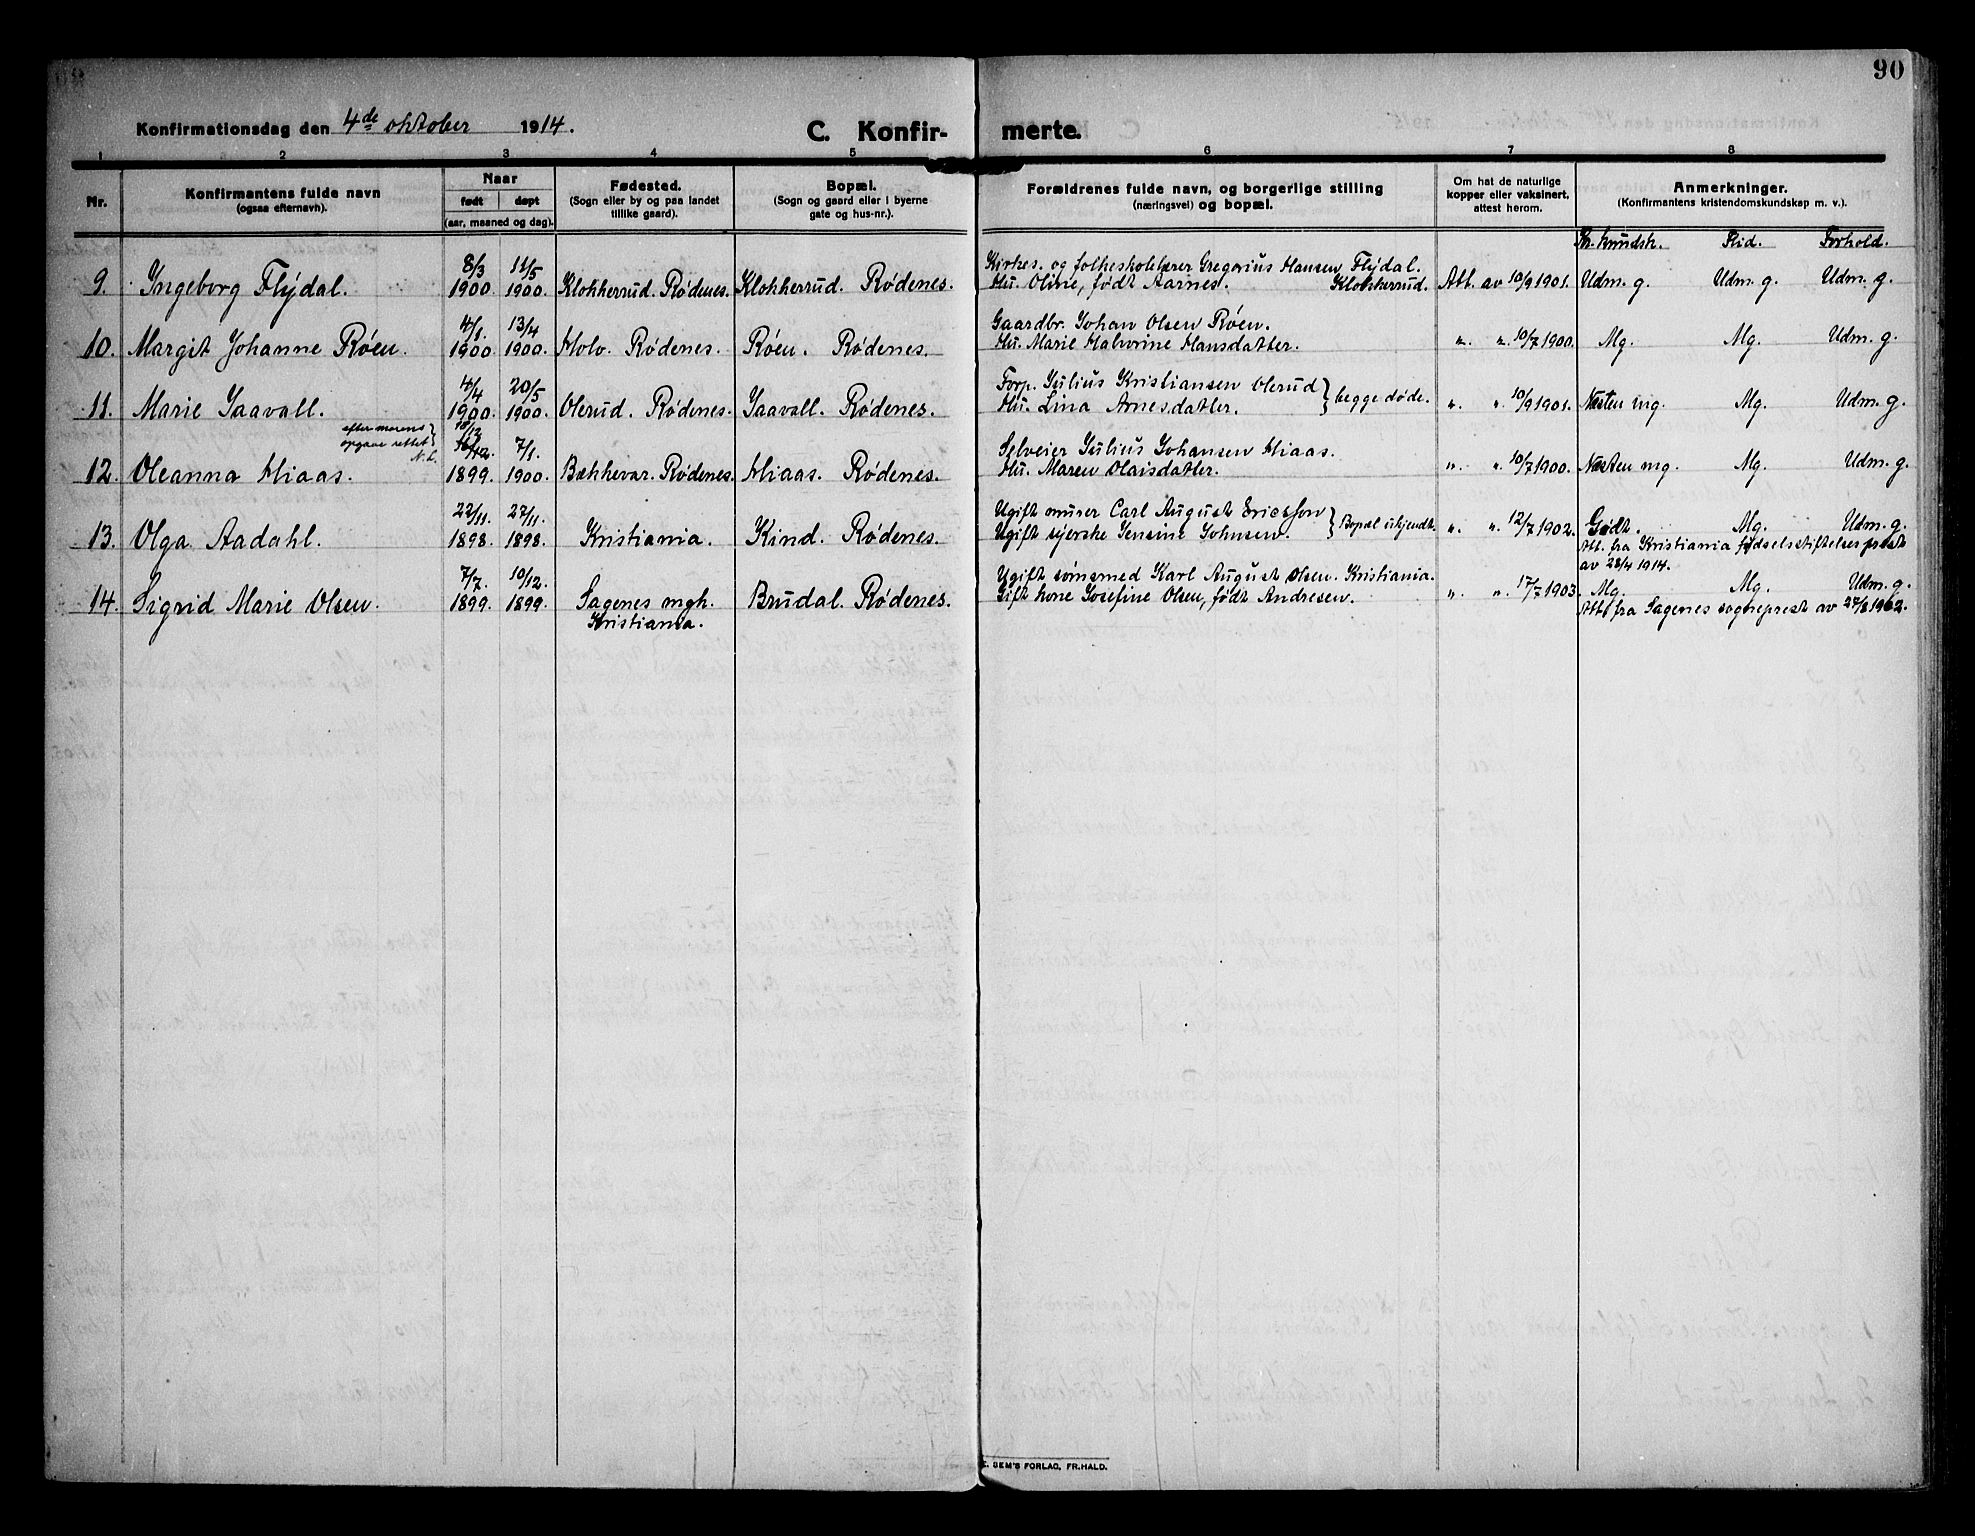 90
Konfirmationsdag den 4de oktober 1914.
C. Konfirmerte.
1 2 3 4 5 6 7 8
Nr.
Konfirmantens fulde navn
(ogsaa efternavn).
Naar
født døpt
(aar, maaned og dag).
Fødested.
(Sogn eller by og paa landet
tillike gaard).
Bopæl.
(Sogn og gaard eller i byerne
gate og hus-nr.).
Forældrenes fulde navn, og borgerlige stilling
(næringsvei) og bopæl.
Om hat de naturlige
kopper eller vaksinert,
attest herom.
Anmerkninger.
(Konfirmantens kristendomskundskap m. v.).
Kr. kundsk. Flid. Forhold.
8/3 11/5 Kirkes. og folkeskolelærer Gregorius Hansen Flydal.
9. Ingeborg Flydal. 1900. 1900. Klokkerrud. Rødenes. Klokkerrud. Rødenes. Hu. Oline, født Aarnes. Klokkerrud. Att. av 10/9 1901. Udm. g. Udm. g. Udm. g.
4/1. 13/4 Gaardbr. Johan Olsen Røen.
10. Margit Johanne Røen. 1900. 1900. Holo. Rødenes. Røen. Rødenes. Hu. Marie Halvorine Hansdatter. " " 10/7 1900. Mg. Mg. Udm. g.
4/4 20/5 Forp. Julius Kristiansen Olerud } begge døde.
11. Marie Taavall. 1900. 1900. Olerud. Rødenes. Taavall. Rødenes. Hu. Lina Arnesdatter. " " 10/9 1901. Næsten mg. Mg. Udm. g.
efter morens
opgave rettet
7/1. Selveier Julius Johansen Hiaas.
12. Oleanna Hiaas. 1899. 1900. Bækkevar. Rødenes. Hiaas. Rødenes. Hu. Maren Olaisdatter. " " 10/7 1900. Næsten mg. Mg. Udm. g.
22/11. 27/11. Ugift murer Carl August Ericsson } Bopæl ukjendt.
13. Olga Aadahl. 1898. 1898. Kristiania. Kind. Rødenes. Ugift syerske Jensine Johnsen. " " 12/7 1902. Godt. Mg. Udm. g.
Att. fra Kristiania fødselsstiftelses prest
av 28/4 1914.
7/7. 10/12. Ugift sømsmed Karl August Olsen. Kristiania.
14. Sigrid Marie Olsen. 1899. 1899. Sagenes mgh. Brudal. Rødenes. Gift kone Josefine Olsen, født Andresen. " " 17/7 1903. Mg. Mg. Udm. g.
Kristiania. Att. fra Sagenes sogneprest av 27/8 1902.
E. SEM'S FORLAG, FR.HALD.